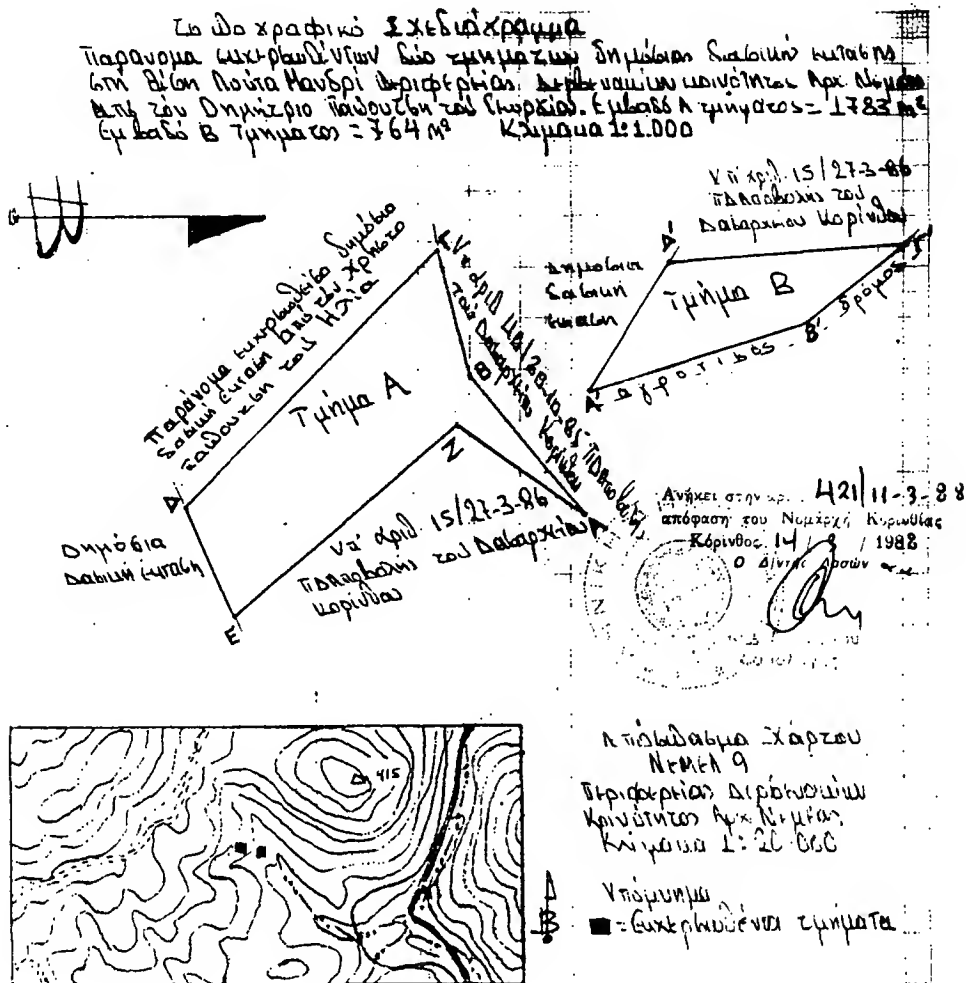 Τοπογραφικό Σχεδιάγραμμα
Παράνομα εκχερσωθέντων δύο τμημάτων δημόσιας δασικής έκτασης
στη θέση Λούτα Μανδρί περιφερείας Δερβενακίων κοινότητας Αρχ. Νεμέας
από τον Δημήτριο του Γεωργίου. Εμβαδό Α τμήματος = 1783 m²
Εμβαδό Β Τμήματος = 764 m² Κλίμακα 1:1.000
Υπ' αριθ. 15/27-3-86
Π.Δ. Αποβολής του
Δασαρχείου Κορίνθου
Δημόσια
δασική
έκταση
Δ'
Γ'
Τμήμα Β
Α'
αγροτικός
Β'
δρόμος
Παράνομα εκχερσωθείσα δημόσια
δασική έκταση από τον Χρήστο
του Ηλία
Γ
Υπ' αριθ.
του Δασαρχείου Κορίνθου
Β
Τμήμα Α
Ζ
Δ
Α
Δημόσια
Δασική έκταση
Ε
Υπ' αριθ. 15/27-3-86
Π.Δ. Αποβολής του Δασαρχείου
Κορίνθου
Ανήκει στην αρ. 421/11-3-88
απόφαση του Νομάρχη Κορινθίας
Κόρινθος 14 / / 1988
Ο Δ/ντής Δασών
415
Απόσπασμα Χάρτου
ΝΕΜΕΑ 9
Περιφερείας Δερβενακίων
Κοινότητος Αρχ. Νεμέας
Κλίμακα 1:20.000
Β
Υπόμνημα
■ = Εκχερσωθέντα τμήματα